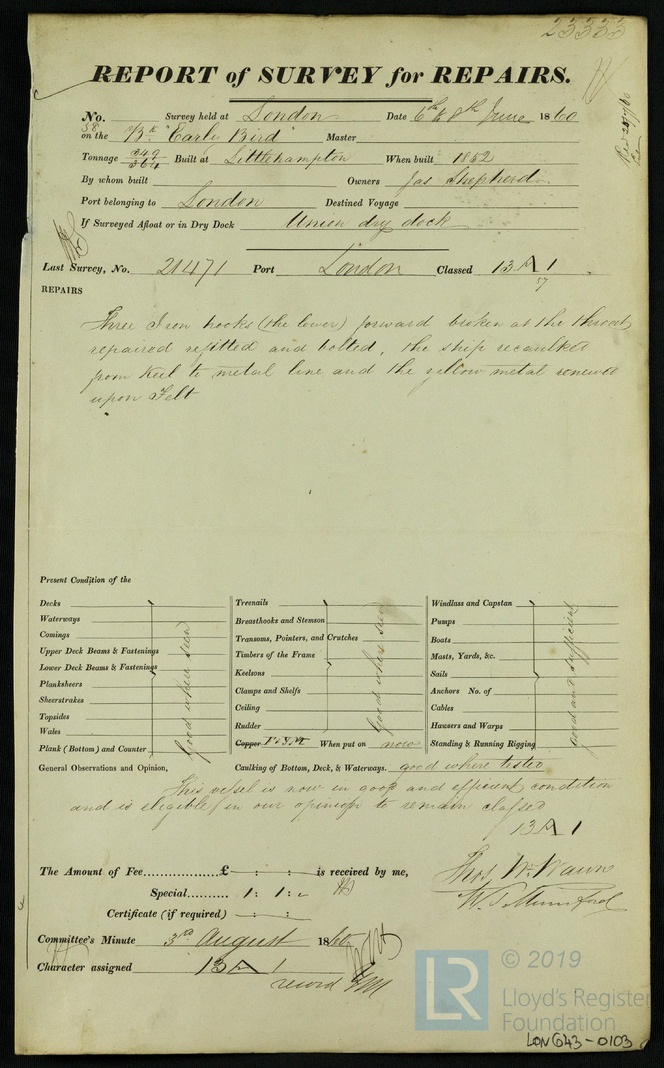 23333
REPORT of SURVEY for REPAIRS.
No. Survey held at London Date 6th & 8th June 1860
58
on the Bk "Early Bird" Master
Tonnage 349/364 Built at Littlehampton When built 1852
By whom built Owners Jas Shepherd
Port belonging to London Destined Voyage
If Surveyed Afloat or in Dry Dock Union dry dock
Last Survey, No. 21471 Port London Classed 13 A 1
57
REPAIRS
Three Iron hooks (the lower) forward broken at the throat
repaired refitted and bolted, the ship recaulked
from Keel to metal line and the yellow metal renewed
upon Felt
Present Condition of the
Decks
Waterways
Comings
Upper Deck Beams & Fastenings
Lower Deck Beams & Fastenings
Planksheers
Sheerstrakes
Topsides
Wales
Plank (Bottom) and Counter
good where seen
Treenails
Breasthooks and Stemson
Transoms, Pointers, and Crutches
Timbers of the Frame
Keelsons
Clamps and Shelfs
Ceiling
Rudder
Copper When put on now
good where seen
Windlass and Capstan
Pumps
Boats
Masts, Yards, &c.
Sails
Anchors No. of
Cables
Hawsers and Warps
Standing & Running Rigging
good and sufficient
General Observations and Opinion, Caulking of Bottom, Deck, & Waterways. good where tested
This vessel is now in good and efficient condition
and is eligible in our opinion to remain classed
13 A 1
The Amount of Fee £ : : is received by me,
Special 1 : 1 : -
Certificate (if required) : :
Thos. Wm. Wawn
W. T. Mumford
Committee's Minute 3rd August 1860
Character assigned 13 A 1
record
LR
© 2019
Lloyd's Register
Foundation
LON643-0103